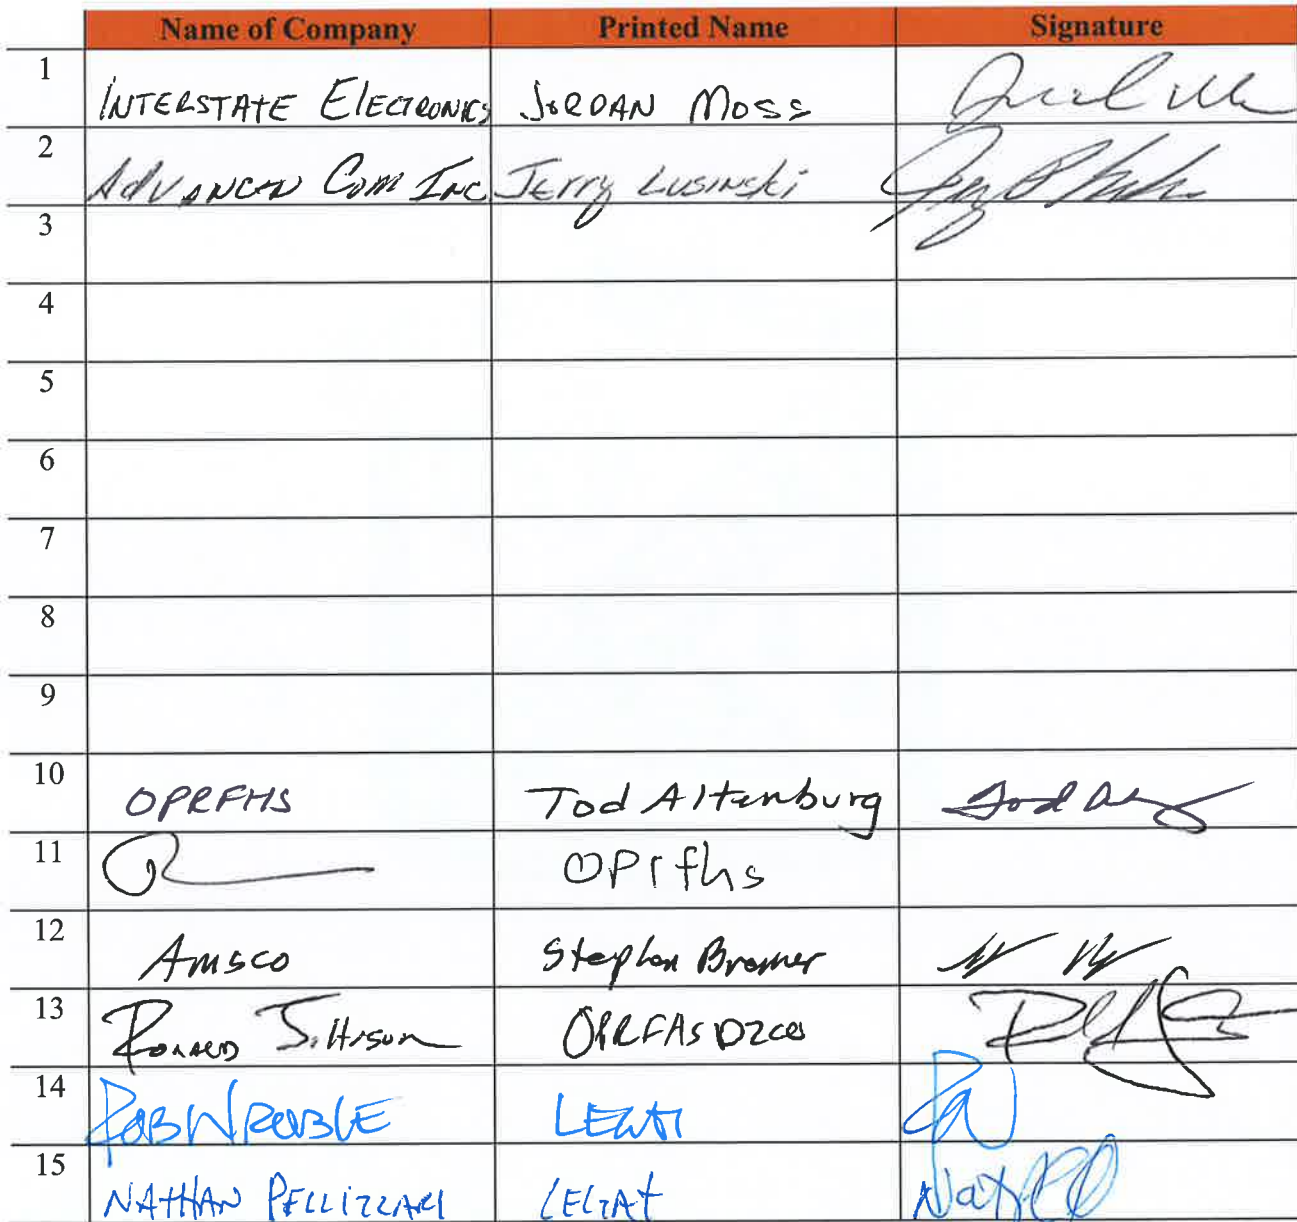 Name of Company Printed Name Signature
1 INTERSTATE ELECTRONICS JORDAN MOSS
2 ADVANCED Com INC Jerry Lusinski
3
4
5
6
7
8
9
10 OPRFHS Tod Altenburg
11 OPrfhs
12 Amsco Stephen
13 RONALD
14 ROB WROBLE LEGAT
15 NATHAN PELLIZZARI LEGAT